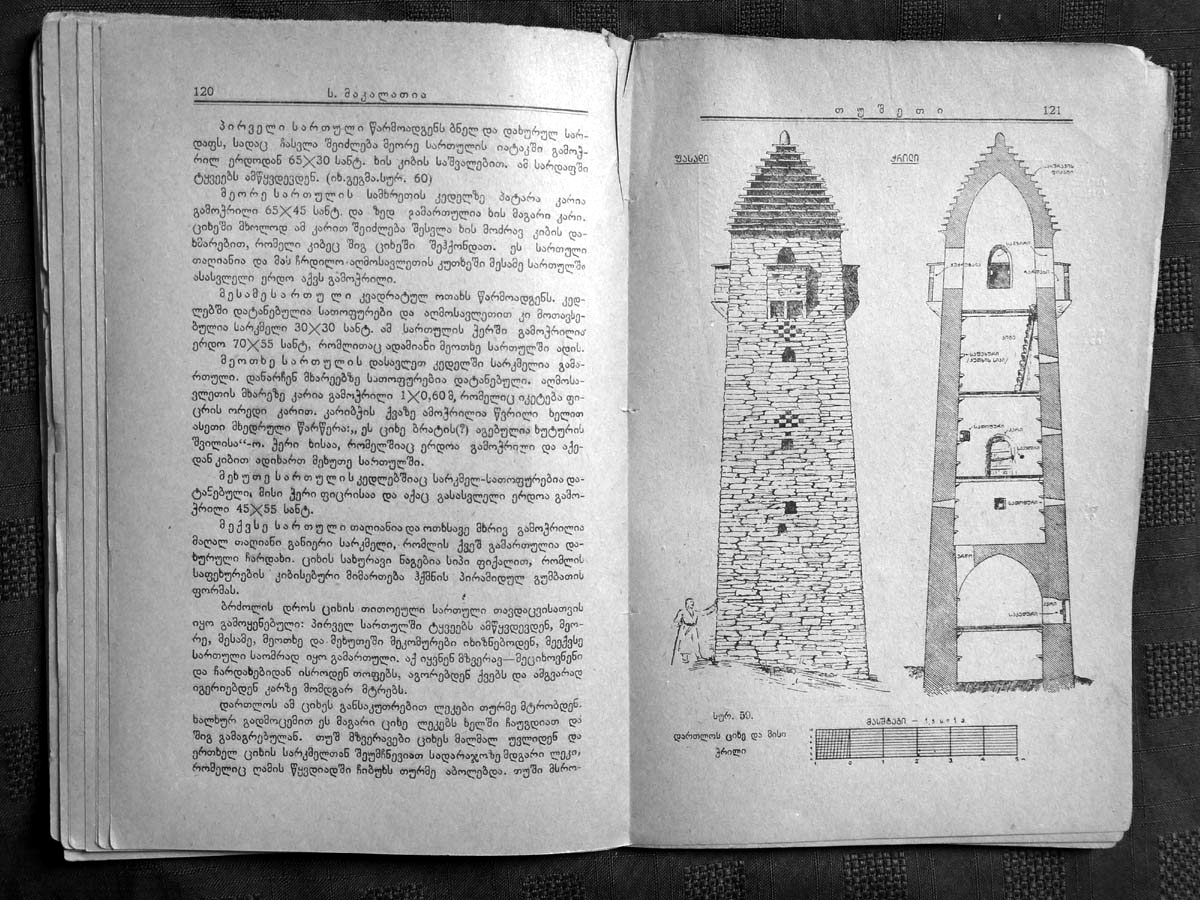 120
ს. მაკალათია
პირველი სართული წარმოადგენს ბნელ და დახურულ სარ-
დაფს, სადაც ჩასვლა შეიძლება მეორე სართულის იატაკში გამოჭ-
რილ ერდოდან 65×30 სანტ. ხის კიბის საშვალებით. ამ სარდაფში
ტყვეებს ამწყვდევდენ. (იხ.გეგმა.სურ. 60)
მეორე სართულის სამხრეთის კედელზე პატარა კარია
გამოჭრილი 65×45 სანტ. და ზედ გამართულია ხის მაგარი კარი.
ციხეში მხოლოდ ამ კარით შეიძლება შესვლა ხის მოძრავ კიბის და-
ხმარებით, რომელი კიბეც შიგ ციხეში შეჰქონდათ. ეს სართული
თაღიანია და მას ჩრდილო-აღმოსავლეთის კუთხეში მესამე სართულში
ასასვლელი ერდო აქვს გამოჭრილი.
მესამე სართული კვადრატულ ოთახს წარმოადგენს. კედ-
ლებში დატანებულია სათოფურები და აღმოსავლეთით კი მოთავსე-
ბულია სარკმელი 30×30 სანტ. ამ სართულის ჭერში გამოჭრილია
ერდო 70×55 სანტ, რომლითაც ადამიანი მეოთხე სართულში ადის.
მეოთხე სართულის დასავლეთ კედელში სარკმელია გამა-
რთული. დანარჩენ მხარეებზე სათოფურებია დატანებული. აღმოსა-
ვლეთის მხარეზე კარია გამოჭრილი 1×0,60 მ, რომელიც იკეტება ფი-
ცრის ორედი კარით. კარიბჭის ქვაზე ამოჭრილია წვრილი ხელით
ასეთი მხედრული წარწერა:„ ეს ციხე ბრატის(?) აგებულია ხუტურის
შვილისა“-ო. ჭერი ხისაა, რომელშიაც ერდოა გამოჭრილი და აქე-
დან კიბით ადიხართ მეხუთე სართულში.
მეხუთე სართულის კედლებშიაც სარკმელ-სათოფურებია და-
ტანებული, მისი ჭერი ფიცრისაა და აქაც გასასვლელი ერდოა გამო-
ჭრილი 45×55 სანტ.
მექვსე სართული თაღიანია და ოთხსავე მხრივ გამოჭრილია
მაღალ თაღიანი განიერი სარკმელი, რომლის ქვეშ გამართულია და-
ხურული ჩარდახი. ციხის სახურავი ნაგებია სიპი ფიქალით, რომლის
საფეხურების კიბისებური მიმართება ჰქმნის პირამიდულ გუმბათის
ფორმას.
ბრძოლის დროს ციხის თითოეული სართული თავდაცვისათვის
იყო გამოყენებული: პირველ სართულში ტყვეებს ამწყვდევდენ, მეო-
რე, მესამე, მეოთხე და მეხუთეში მეკომურები იხიზნებოდენ, მეექვსე
სართული საომრად იყო გამართული. აქ იყვნენ მზვერავ—მეციხოვნენი
და ჩარდახებიდან ისროდენ თოფებს, აგორებდენ ქვებს და ამგვარად
იგერიებდენ კარზე მომდგარ მტრებს.
დართლოს ამ ციხეს განსაკუთრებით ლეკები თურმე მტრობდენ.
ხალხურ გადმოცემით ეს მაგარი ციხე ლეკებს ხელში ჩაუგდიათ და
შიგ გამაგრებულან. თუშ მზვერავები ციხეს მალმალ უვლიდენ და
ერთხელ ციხის სარკმელთან შეუმჩნევიათ სადარაჯოზე მდგარი ლეკი,
რომელიც ღამის წყვდიადში ჩიბუხს თურმე აბოლებდა. თუში მსრო-
თუშეთი
121
ფასადი
ჭრილი
სურ. 59.
დართლოს ციხე და მისი
ჭრილი
მასშტაბი
1 0 1 2 3 4 5